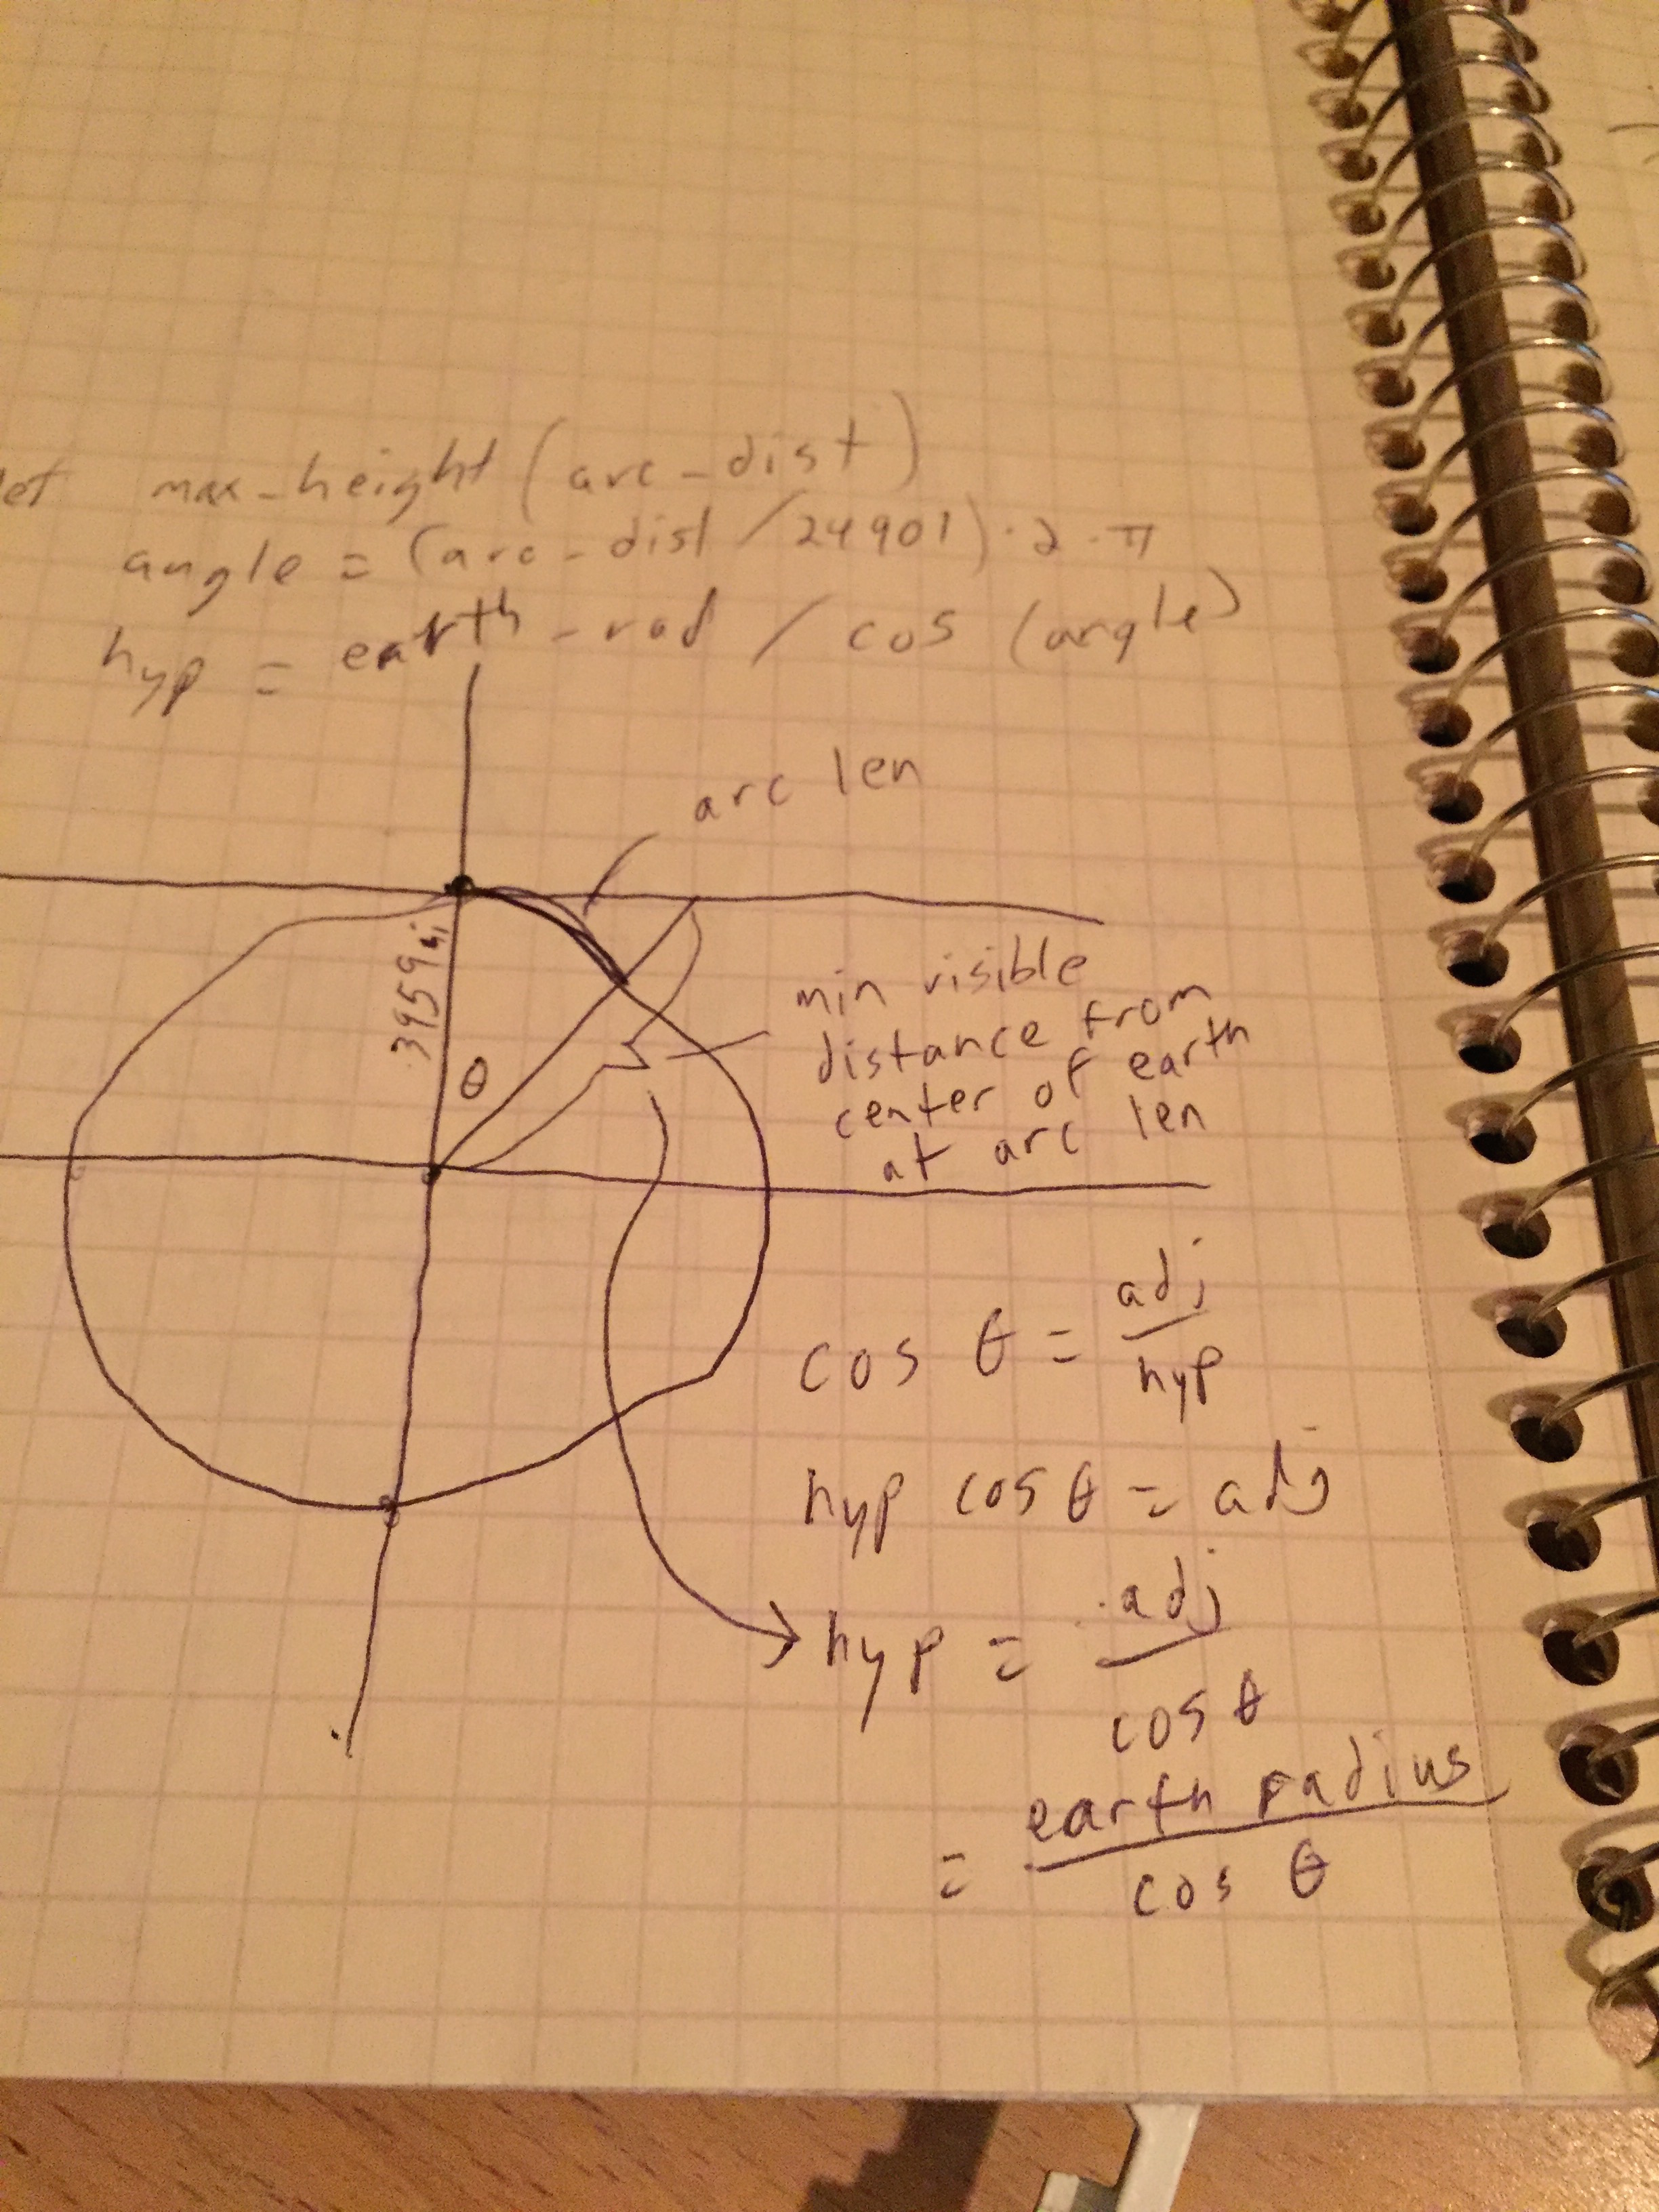 max_height (arc_dist)
angle = (arc_dist / 24901) · 2 · π
hyp = earth_rad / cos (angle)
arc len
3959 mi
θ
min visible
distance from
center of earth
at arc len
cos θ = adj / hyp
hyp cos θ = adj
hyp = adj / cos θ
= earth radius / cos θ